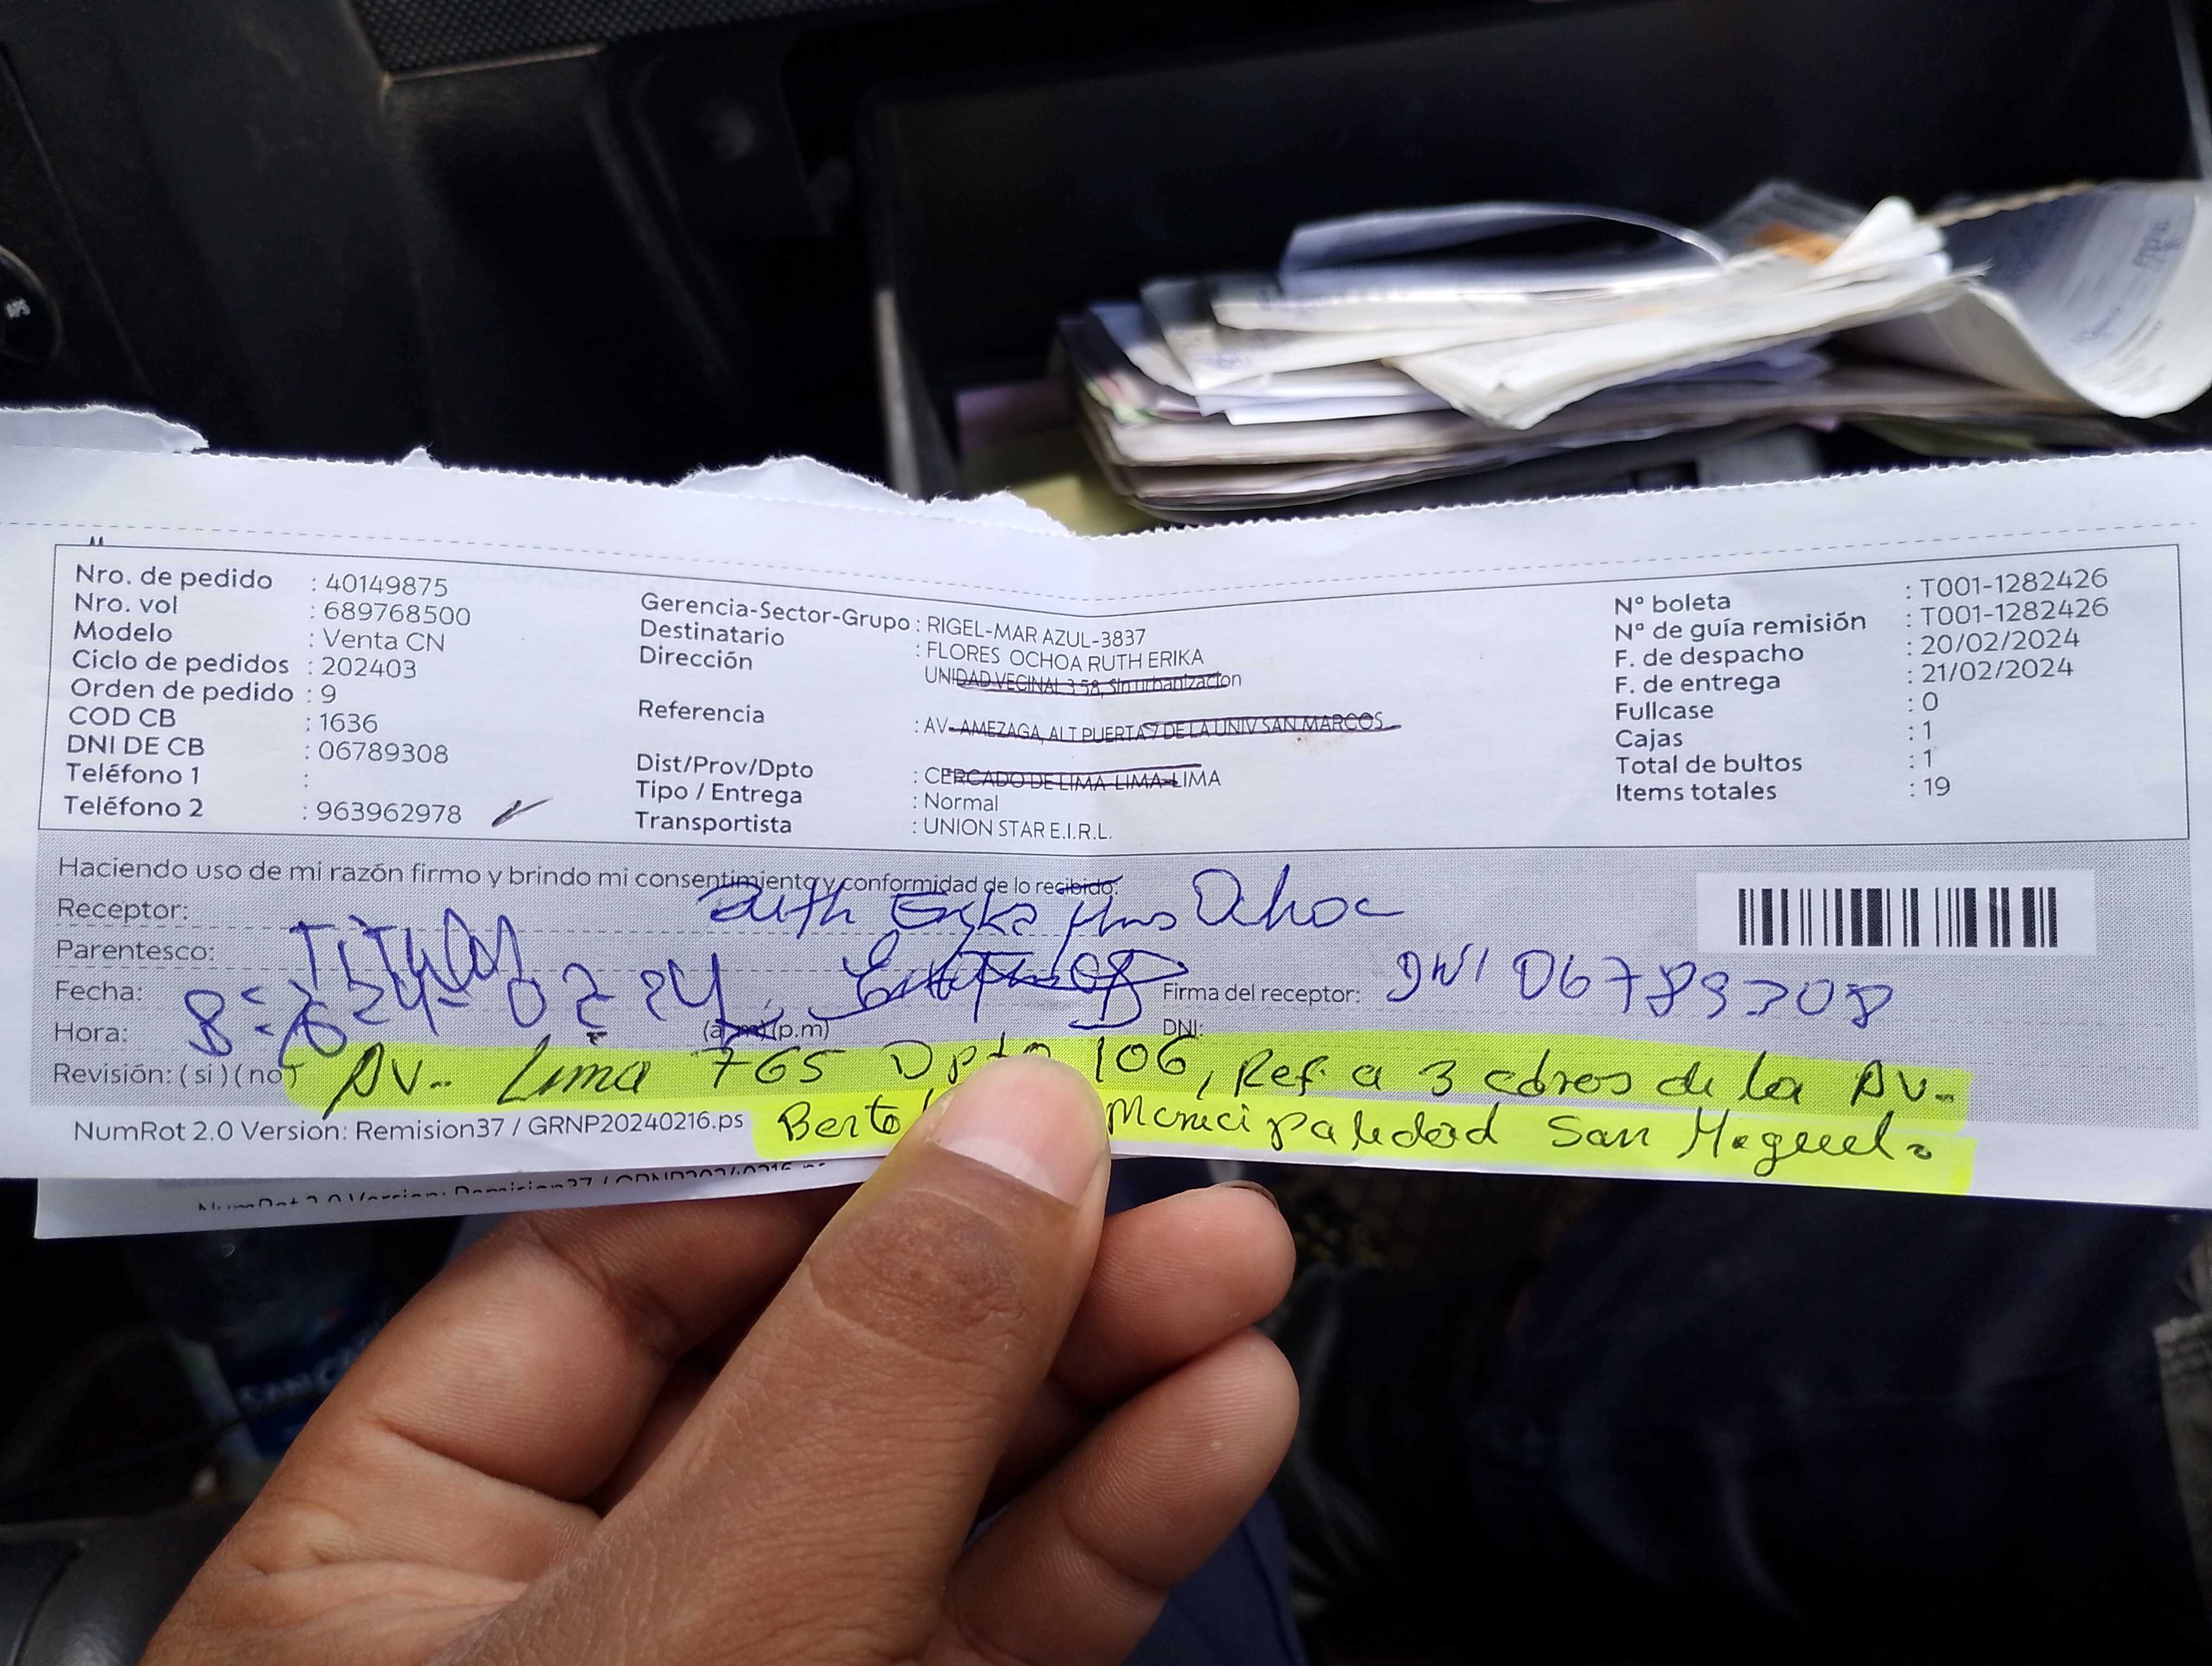 Nro. de pedido : 40149875
Nro. vol : 689768500
Modelo : Venta CN
Ciclo de pedidos : 202403
Orden de pedido : 9
COD CB : 1636
DNI DE CB : 06789308
Teléfono 1 :
Teléfono 2 : 963962978
Gerencia-Sector-Grupo : RIGEL-MAR AZUL-3837
Destinatario : FLORES OCHOA RUTH ERIKA
Dirección UNIDAD VECINAL 3 58, Sin urbanizacion
Referencia : AV AMEZAGA, ALT PUERTA 7 DE LA UNIV SAN MARCOS
Dist/Prov/Dpto : CERCADO DE LIMA-LIMA-LIMA
Tipo / Entrega : Normal
Transportista : UNION STAR E.I.R.L.
N° boleta : T001-1282426
N° de guía remisión : T001-1282426
F. de despacho : 20/02/2024
F. de entrega : 21/02/2024
Fullcase : 0
Cajas : 1
Total de bultos : 1
Items totales : 19
Haciendo uso de mi razón firmo y brindo mi consentimiento y conformidad de lo recibido.
Receptor: Ruth Erika Ochoa
Parentesco: TiTular
Fecha:
Firma del receptor: DNI 06789308
Hora: (a.m)(p.m) DNI:
Revisión: (si) (no) AV. Lima 765 Dpto 106, Ref. a 3 cdras de la AV.
NumRot 2.0 Version: Remision37 / GRNP20240216.ps Municipalidad San Miguel.
NumRot 2.0 Version: Remision37 / GRNP20240216.ps